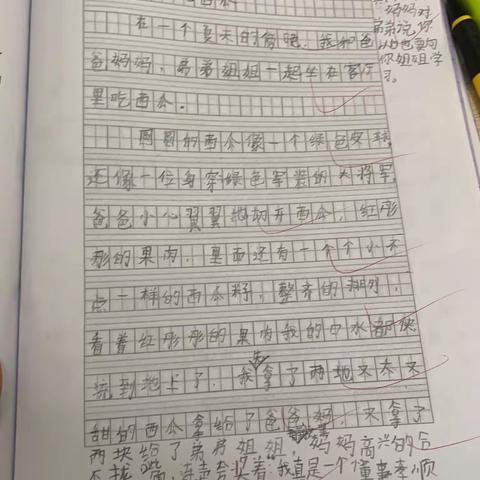 西瓜
在一个夏天的傍晚，我和爸
爸妈妈，弟弟姐姐一起坐在客厅
里吃西瓜。
圆圆的西瓜像一个绿色皮球，
还像一位身穿绿色军装的大将军，
爸爸小心翼翼地切开西瓜，红彤
彤的果肉，里面还有一个个小不
点一样的西瓜籽，整齐的排列，
看着红彤彤的果肉我的口水都快
流到地上了。我先拿了两块又大又
甜的西瓜拿给了爸爸妈，又拿了
两块给了弟弟姐姐，妈妈高兴的合
不拢嘴，连声夸奖着“我真是一个懂事孝顺
妈妈对
弟弟说，你
以后也要向
你姐姐学
习。